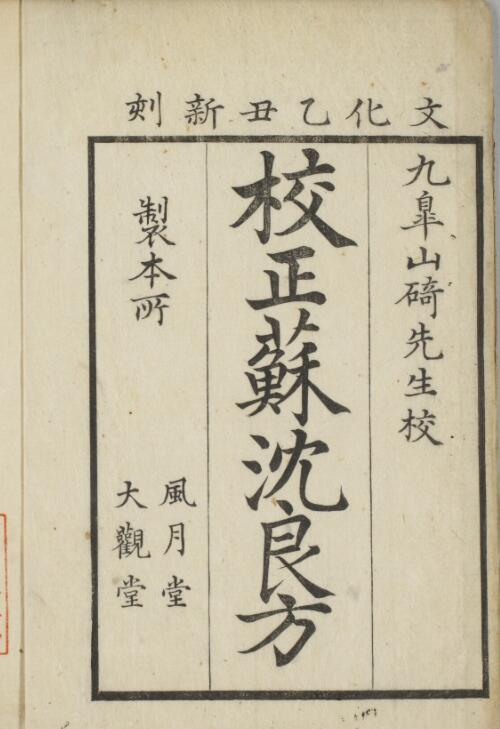 文化乙丑新刻
九皐山碕先生校
校正蘇沈良方
製本所
風月堂
大觀堂